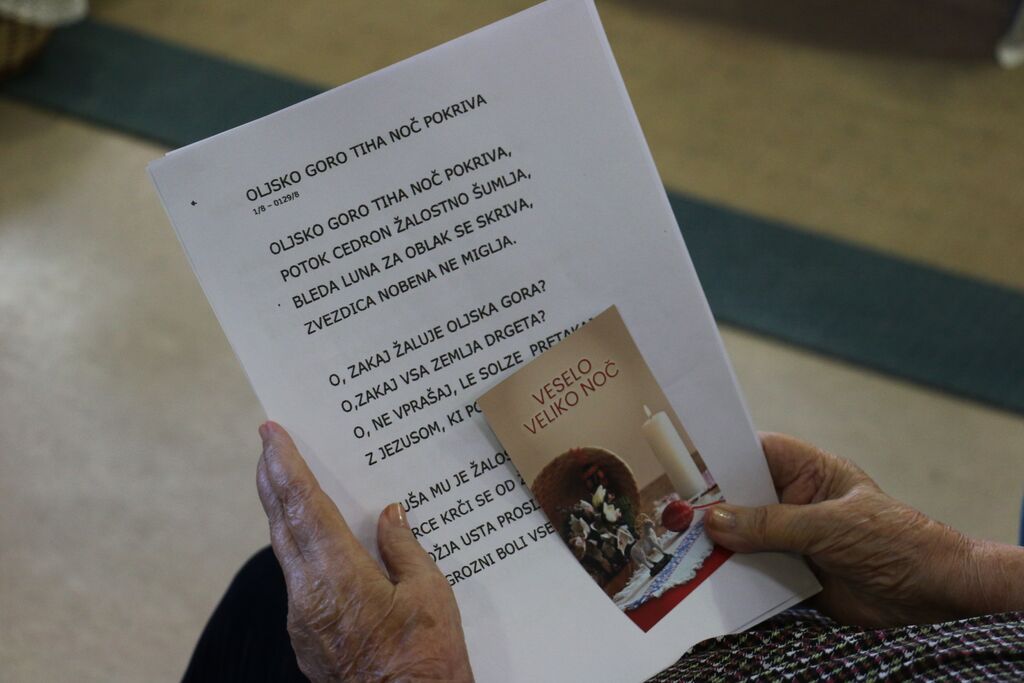 OLJSKO GORO TIHA NOČ POKRIVA
1/8 – 0129/8
OLJSKO GORO TIHA NOČ POKRIVA,
POTOK CEDRON ŽALOSTNO ŠUMLJA,
BLEDA LUNA ZA OBLAK SE SKRIVA,
ZVEZDICA NOBENA NE MIGLJA.
O, ZAKAJ ŽALUJE OLJSKA GORA?
O,ZAKAJ VSA ZEMLJA DRGETA?
O, NE VPRAŠAJ, LE SOLZE
Z JEZUSOM, KI
MU JE
KRČI SE OD
USTA
GROZNI BOLI
VESELO
VELIKO NOČ